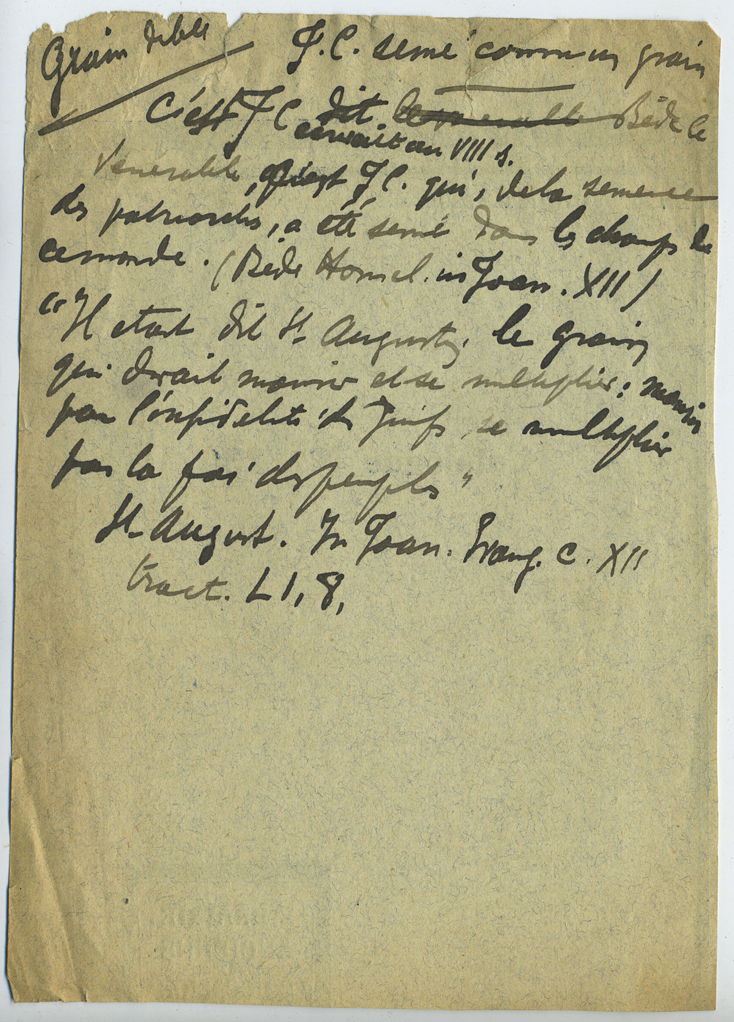 Grain de blé
J.C. semé comme un grain
C'est J C dit le venerable Bède le
écrivait au VIII s.
Venerable, J.C. qui, de la semence
des patriarches, a été semé dans les champs de
ce monde. (Bède Homel. in Joan. XII)
"Il etait dit St Augustin le grain
qui devait mourir et se multiplier: mourir
par l'infidelité des Juifs, se multiplier
par la foi des peuples"
St August. In Joan. Evang. C. XII
tract. L I, 8,